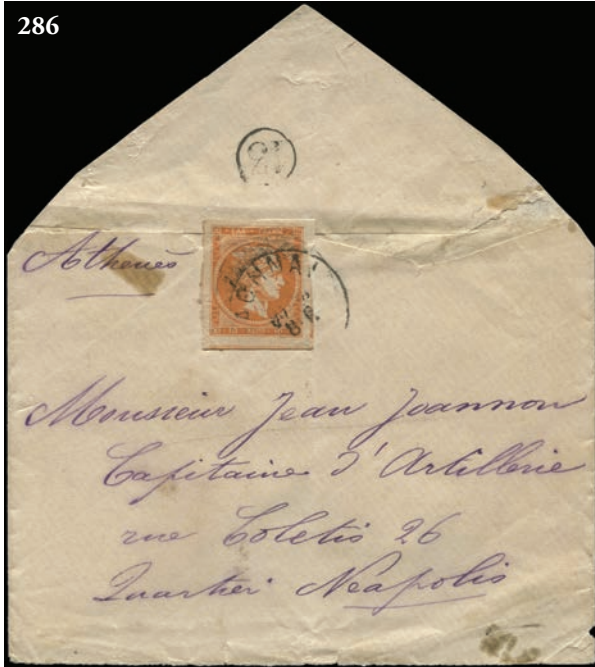 286
Athenès
ΑΘΗΝΑΙ
Monsieur Jean Joannon
Capitaine d'Artillerie
rue Coletis 26
Quartier Neapolis